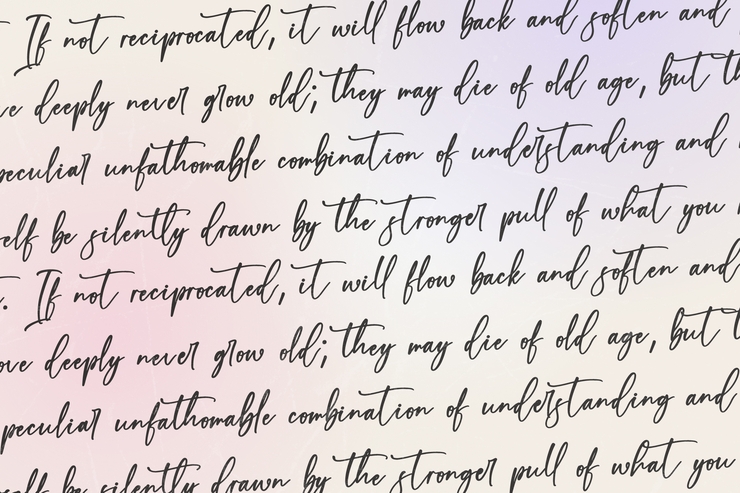 If not reciprocated, it will flow back and soften and
deeply never grow old; they may die of old age, but
peculiar unfathomable combination of understanding and
elf be silently drawn by the stronger pull of what you
. If not reciprocated, it will flow back and soften and
ove deeply never grow old; they may die of old age, but
peculiar unfathomable combination of understanding and
be silently drawn by the stronger pull of what you